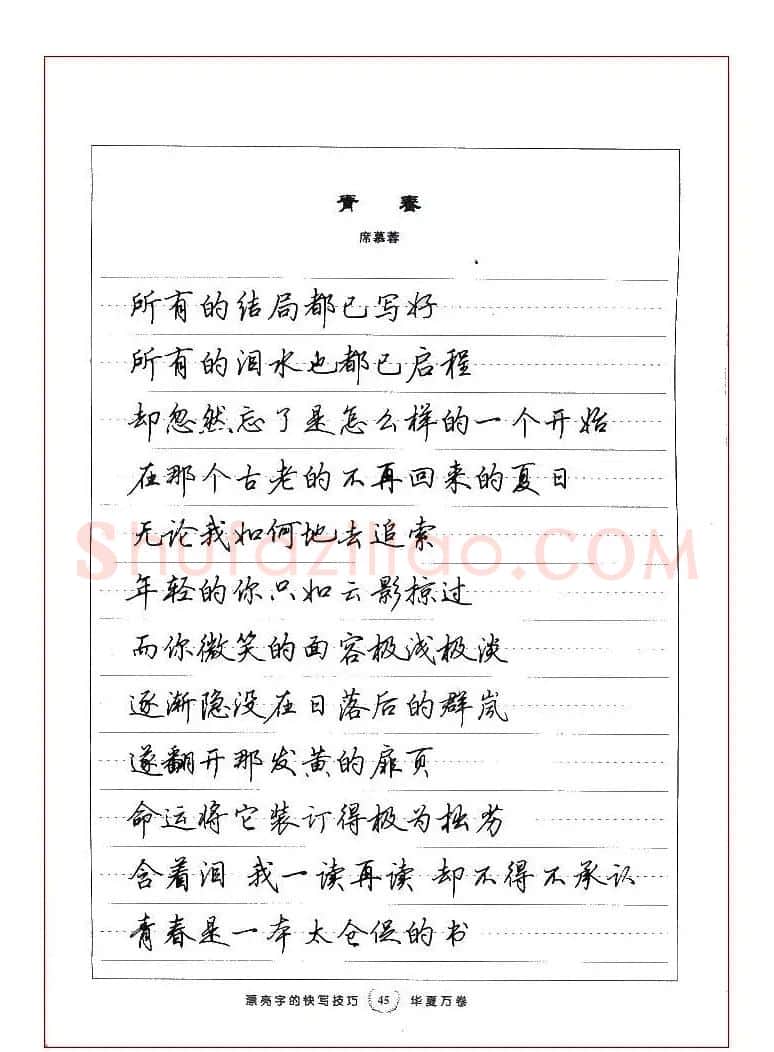 青 春
席慕蓉
所有的结局都已写好
所有的泪水也都已启程
却忽然忘了是怎么样的一个开始
在那个古老的不再回来的夏日
无论我如何地去追索
shufaziliao.COM
年轻的你只如云影掠过
而你微笑的面容极浅极淡
逐渐隐没在日落后的群岚
遂翻开那发黄的扉页
命运将它装订得极为拙劣
含着泪 我一读再读 却不得不承认
青春是一本太仓促的书
漂亮字的快写技巧 45 华夏万卷